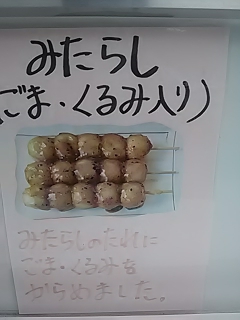 みたらし
(ごま・くるみ入り)
みたらしのたれに
ごま・くるみを
からめました。